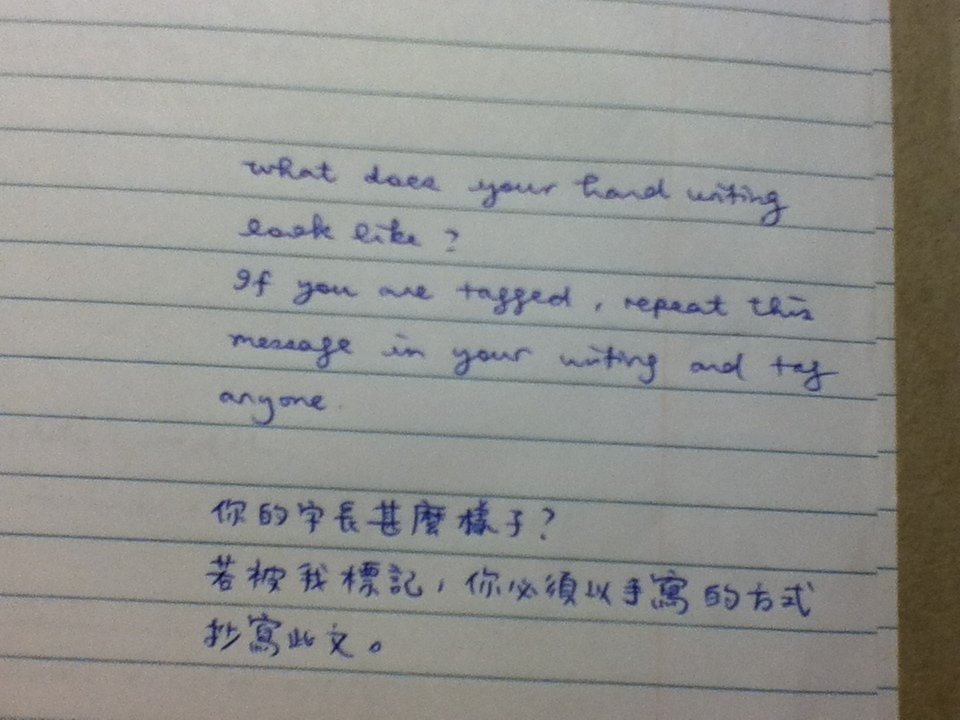 what does your hand writing
look like ?
If you are tagged , repeat this
message in your writing and tag
anyone.
你的字長甚麼樣子?
若被我標記,你必須以手寫的方式
抄寫此文。